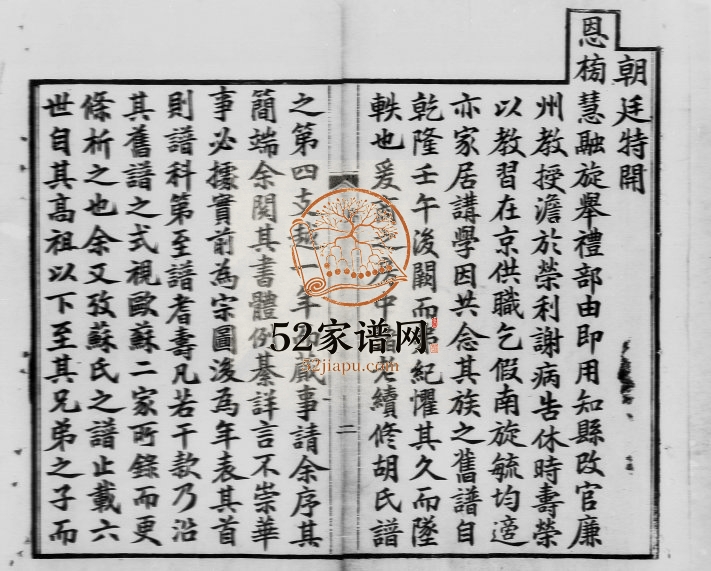 朝廷特開
恩榜慧融旋舉禮部由即用知縣改官廉
州教授澹於榮利謝病告休時壽榮
以教習在京供職乞假南旋毓均適
亦家居講學因共念其族之舊譜自
乾隆壬午後闕而弗紀懼其久而墜
軼也爰商之 續修胡氏譜
之第四支 事請余序其
簡端余閱其書體例綦詳言不崇華
事必據實前為宗圖後為年表其首
則譜科第至譜耆壽凡若干款乃沿
其舊譜之式視歐蘇二家所錄而更
條析之也余又攷蘇氏之譜止載六
世自其高祖以下至其兄弟之子而
二
52家谱网
52jiapu.com